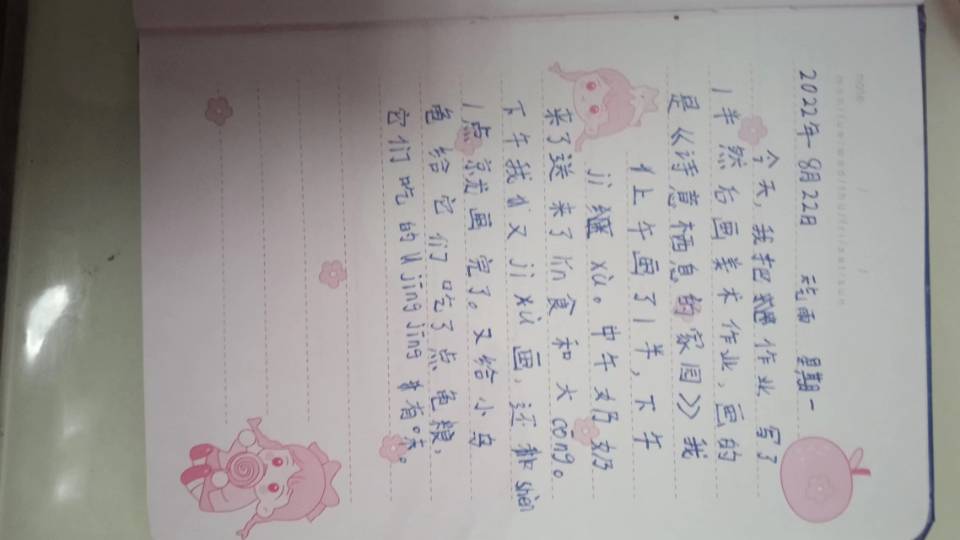 note
2022年8月22日 雨 星期一
今天,我把作业 写了
1半 然后画美术作业,画的
是《诗意栖息的家园》我
们上午画了1半,下午
jì xù。中午奶奶
来了送来了lín食和大cōng。
下午我们又jì xù画,还 shèn
1点就画完了。又给小乌
龟给它们吃了点龟粮,
它们吃的jīng jīng有味。